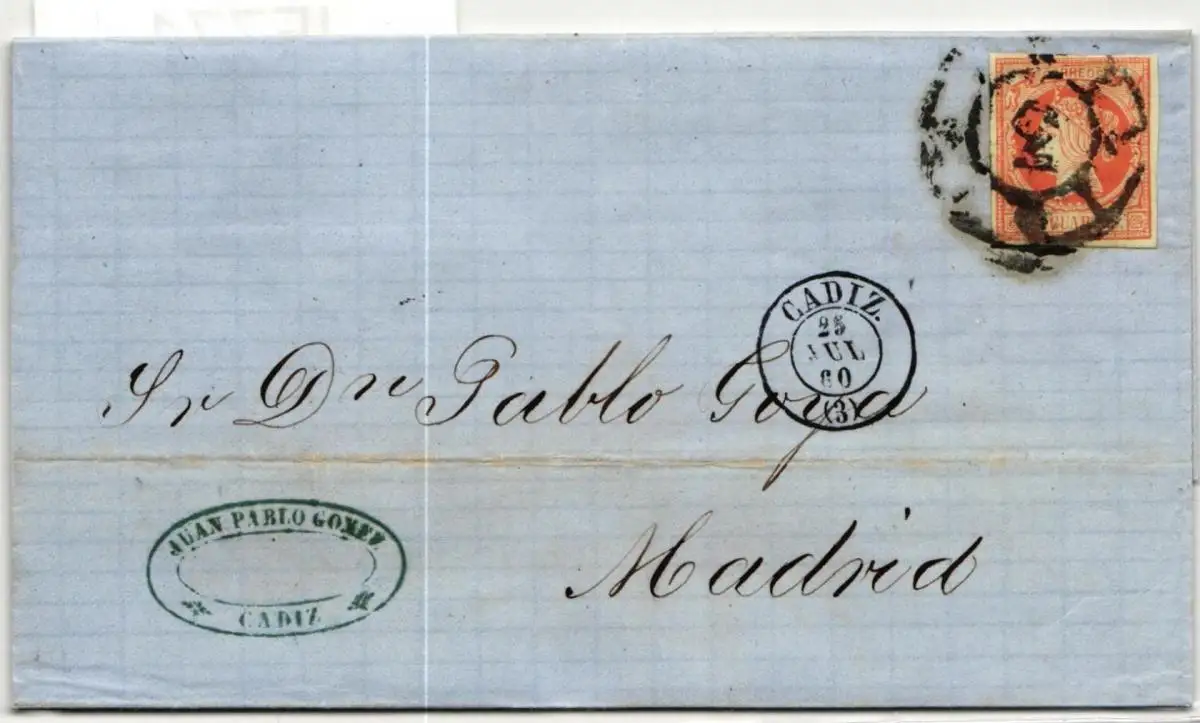 CORREOS
CUAR
CADIZ.
25
JUL
60
(3)
Sr Dn Pablo Goya
Madrid
JUAN PABLO GOMEZ
CADIZ